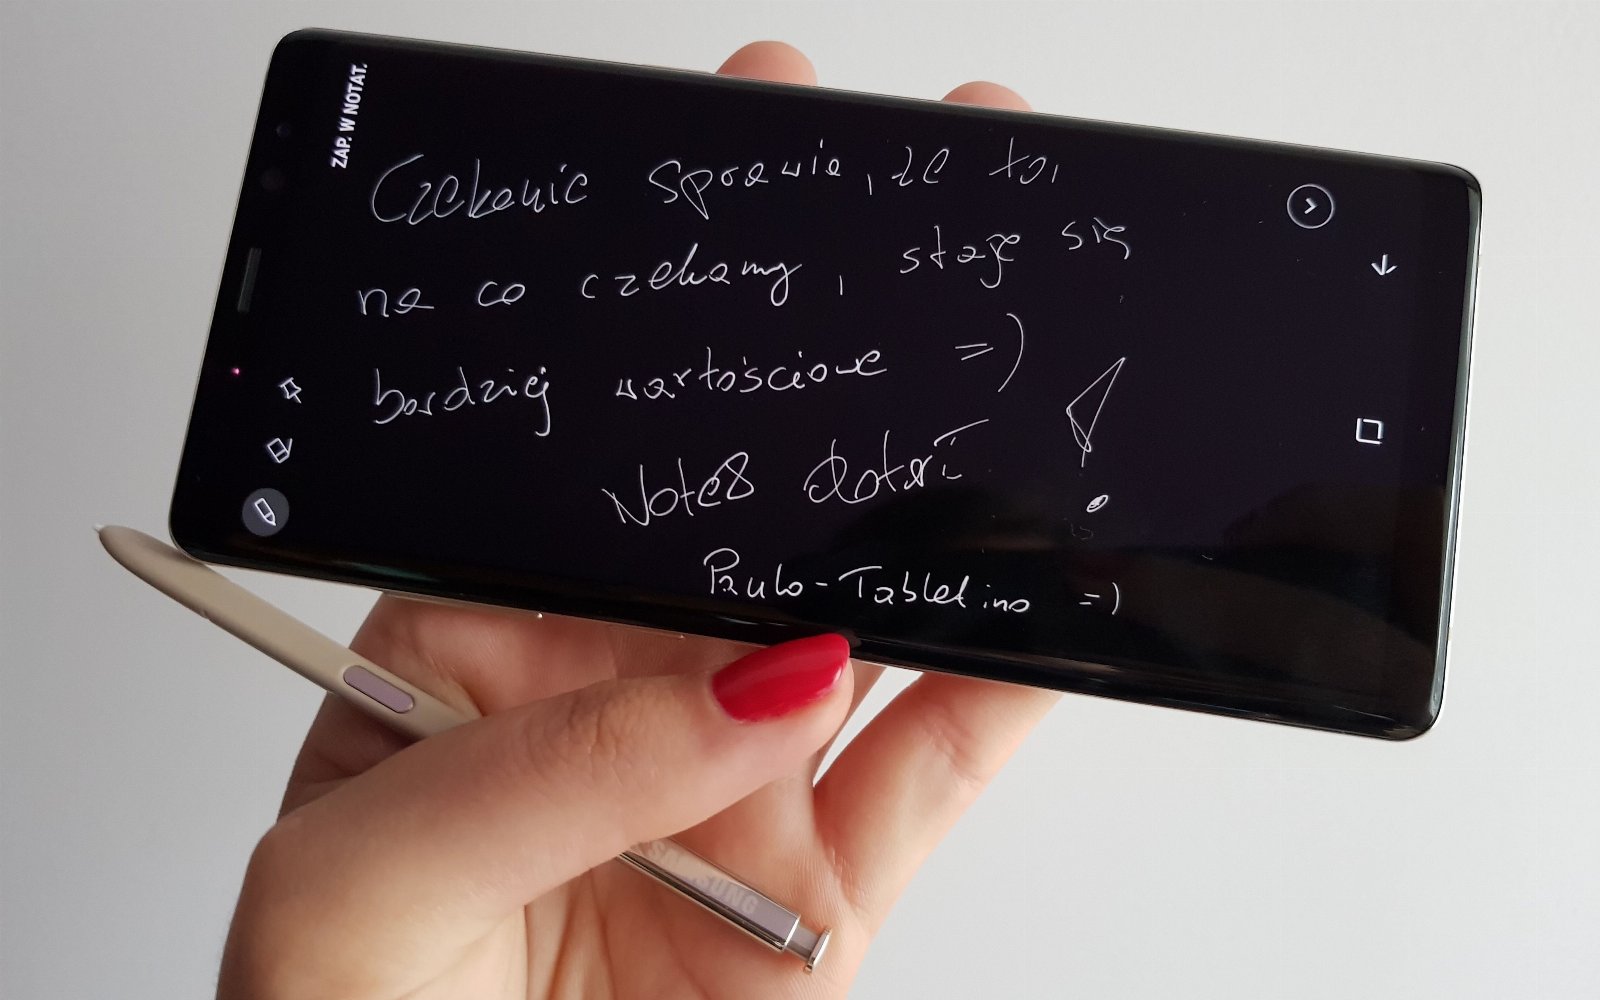 ZAP. W NOTAT.
Czekanie sprawia, że to,
na co czekamy, staje się
bardziej wartościowe =)
Note8 dotarł !
Paulo-Tabletino =)
SAMSUNG